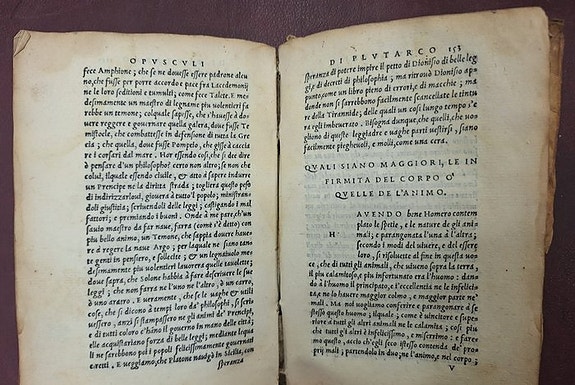 OPVSCVLI
fece Amphione; che se ne douesse essere padrone alcu
no, che fusse per porre accordo e pace fra Lacedemonij
ne le loro seditioni e tumulti; come fece Talete. E me
desimamente un maestro di legname piu uolentieri fa
rebbe un temone; colquale sapisse, c'hauesse à do
uere reggere e gouernare quella galera, doue fusse Te
mistocle, che combattesse in defensione di tutta la Gre
cia; che quella, doue fusse Pompeio, che gisse à caccia
re i corsari dal mare. Hor essendo cosi, che si dee dire
è pensare d'un philosopho? certo non altro; se non che
colui, ilquale essendo ciuile, & atto à sapere indurre
un Prencipe ne la diritta strada; togliera questo peso
di indirizzarloui, giouerà à tutto'l popolo; ministran
doli giustitia; scriuendoli delle leggi; castigando i mal
fattori; e premiando i buoni. Onde à me pare, ch'un
sauio maestro da far naue, farra (come s'è detto) con
piu bello animo, un Temone, che sappia douer hauer
à regere la naue Argo; per laquale ne siano tan
te genti in pensero, e sollecite; & un legnaiuolo me
desimamente piu uolentieri lauorera quelle tauolette;
doue sapra, che Solone habbia à fare descriuere le sue
leggi; che non farra ne l'uno ne l'altro, ò un carro,
ò uno aratro. E ueramente, che se le uaghe & utili
cose, che si dicono à tempi loro da' philosophi, si scri
uessero, anzi si stampassero ne gli animi de' Prencipi,
e di tutti coloro c'hano il gouerno in mano delle città;
elle acquistariano forza di belle leggi; mediante lequa
li ne sarebbono poi i popoli felicissimamente gouernati
e retti. E ueggiamo, che Platone nauigò in Sicilia, con
speranza
DI PLVTARCO 153
speranza di potere impire il petto di Dionisio di belle leg
gi, e di decreti di philosophia; ma ritrouò Dionisio ap
punto, come un libro pieno di errori, e di macchie; ma
donde non si sarebbono facilmente scancellate le tintu
re della Tirannide, delle quali un cosi lungo tempo s'e
ra egli imbeuerato. Bisogna dunque, che quelli, che uo
gliono di queste leggiadre e uaghe parti uestirsi, siano
facilmente piegheuoli, e moli, come una cera.
QVALI SIANO MAGGIORI, LE IN
FIRMITA DEL CORPO O'
QVELLE DE L'ANIMO.
H AVENDO bene Homero contem
plato le spetie, e le nature de gli ani
mali; e parangonata l'una à l'altra,
secondo i modi del uiuere, e del essere
loro, si risoluette al fine in questa uo
ce, che di tutti gli animali, che uiueno sopra la terra,
il piu calamitoso, e piu infortunato era l'huomo: dan
do à l'huomo il principato, e l'eccellentia ne le infelicita
ta; ne lo hauere maggior colmo, e maggior parte ne'
mali. Ma noi uogliamo conferire e parangonare à se
stesso questo huomo; ilquale; come è uincitore e supe
riore à tutti gli altri animali ne le calamita; cosi piu
che tutti gli altri è infelicissimo, e misero: e faremo
questo, accio ch'egli seco istesso contenda de' pro
prij mali; partendolo in due; ne l'animo, e nel corpo;
V